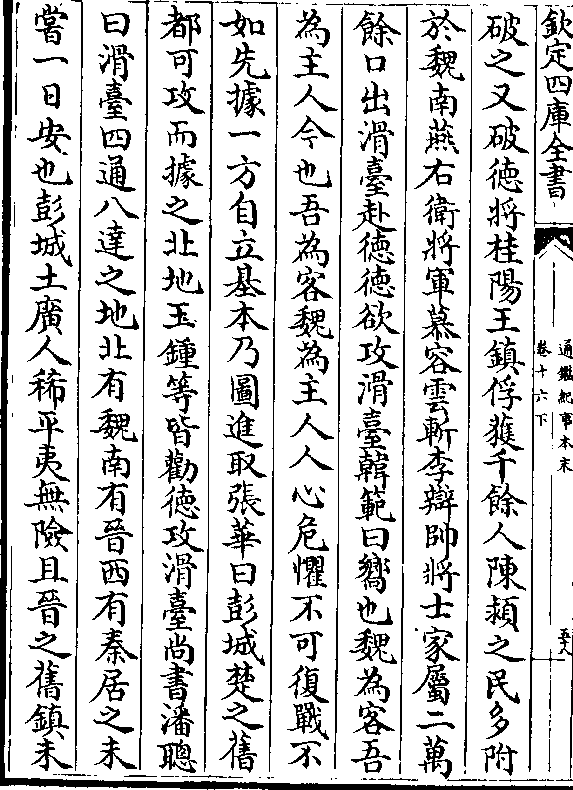 欽定四庫全書
通鑑紀事本末
卷十六下
五八
破之又破德將桂陽王鎮俘獲千餘人陳潁之民多附
於魏南燕右衛將軍慕容雲斬李辯帥將士家屬二萬
餘口出滑臺赴德德欲攻滑臺韓範曰嚮也魏為客吾
為主人今也吾為客魏為主人人心危懼不可復戰不
如先據一方自立基本乃圖進取張華曰彭城楚之舊
都可攻而據之北地王鍾等皆勸德攻滑臺尚書潘聰
曰滑臺四通八達之地北有魏南有晉西有秦居之未
嘗一日安也彭城土廣人稀平夷無險且晉之舊鎮未